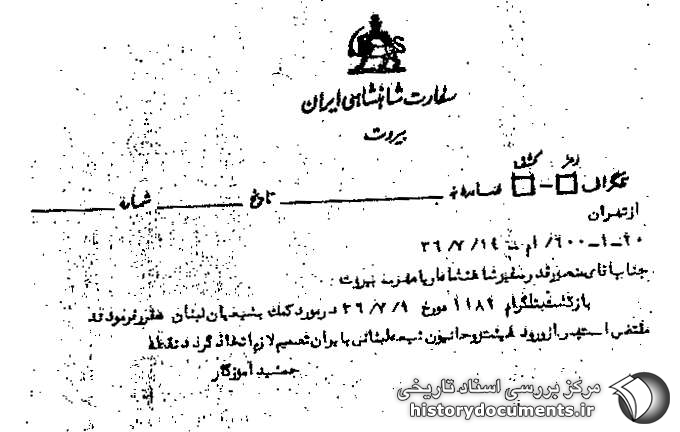 سفارت شاهنشاهی ایران
بیروت
تلگراف رمز - کشف شماره تاریخ شماره
از تهران
۳۶/۷/۱۴
جناب آقای منصور قدر سفیر شاهنشاه آریامهر بیروت
بازگشت بتلگرام ۱۱۸۲ مورخ ۳۶/۷/۹ در مورد کمک بشیعیان لبنان مقرر فرمودند
مقتضی است پس از ورود هیئت روحانیون شیعه لبنانی بایران تصمیم لازم اتخاذ گردد نقطه
جمشید آموزگار
مرکز بررسی اسناد تاریخی
historydocuments.ir